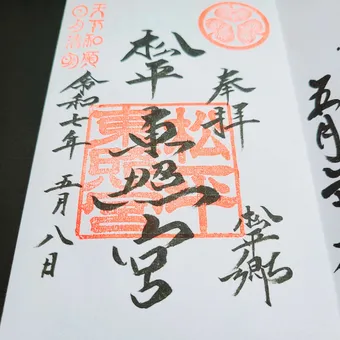 奉拝
松平郷
松平
東照宮
松平
東照宮
令和七年 五月八日
天下和順
日月清明
五月